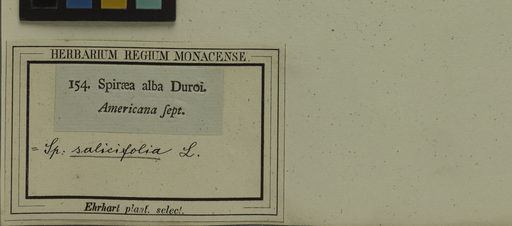 HERBARIUM REGIUM MONACENSE.
154. Spiræa alba Duroi.
Americana ſept.
= Sp: salicifolia L.
Ehrhart plant. select.